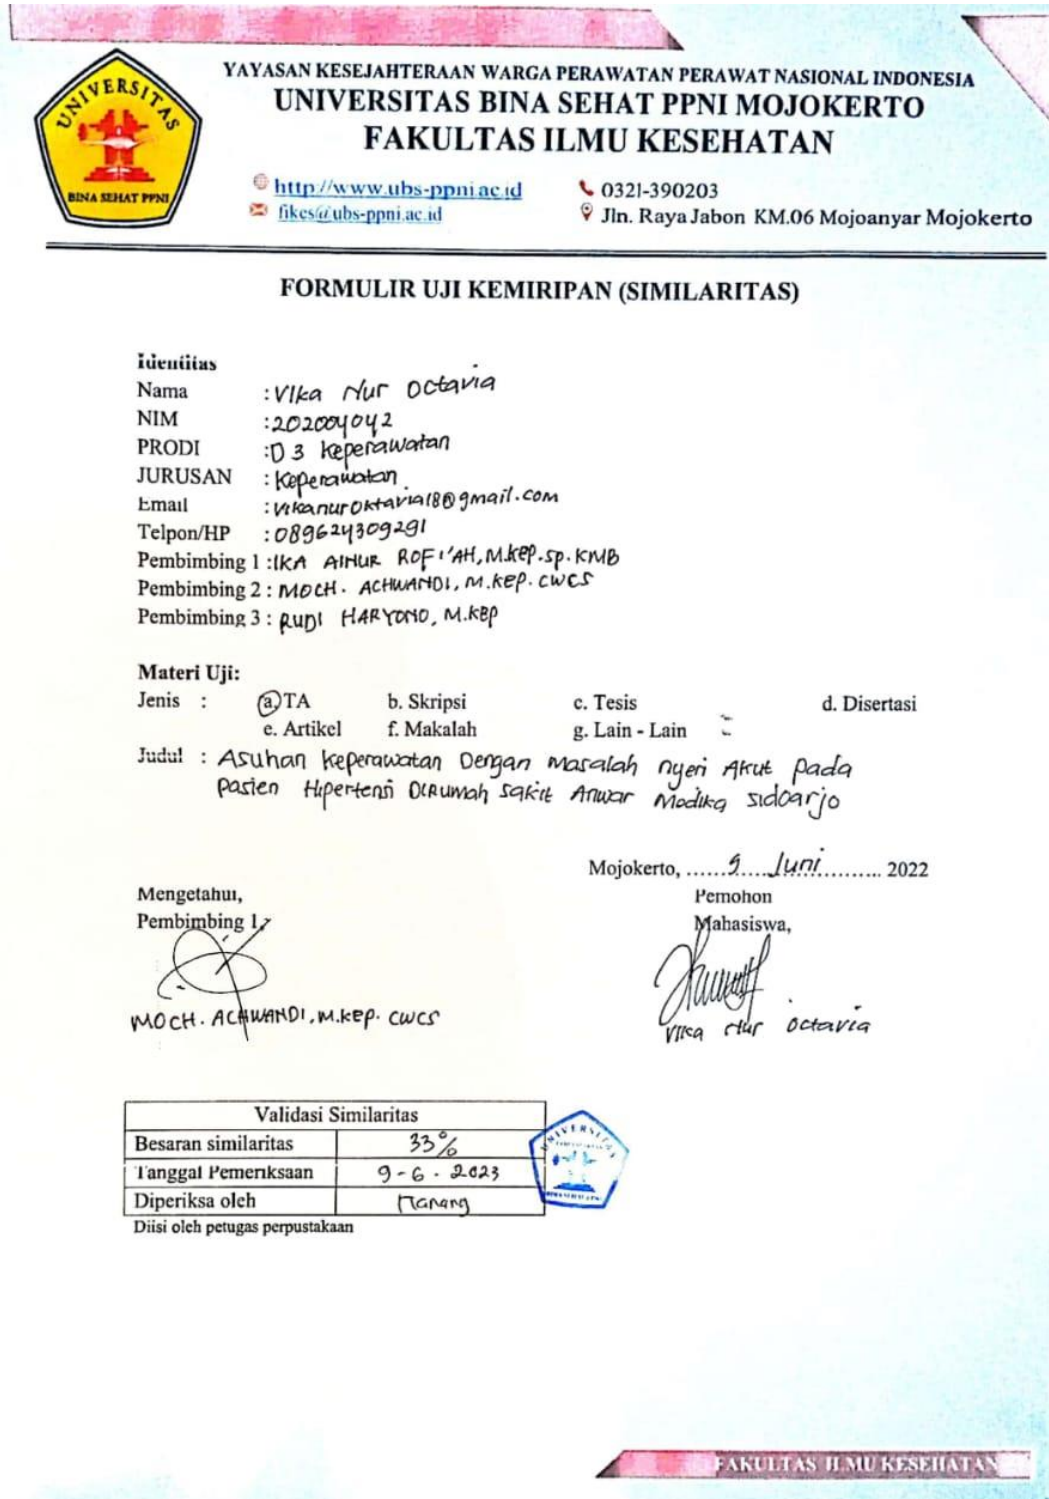 UNIVERSITAS
BINA SEHAT PPNI
YAYASAN KESEJAHTERAAN WARGA PERAWATAN PERAWAT NASIONAL INDONESIA
UNIVERSITAS BINA SEHAT PPNI MOJOKERTO
FAKULTAS ILMU KESEHATAN
http://www.ubs-ppni.ac.id 0321-390203
fikes@ubs-ppni.ac.id Jln. Raya Jabon KM.06 Mojoanyar Mojokerto
FORMULIR UJI KEMIRIPAN (SIMILARITAS)
Identitas
Nama : Vika Nur Octavia
NIM : 202004042
PRODI : D3 Keperawatan
JURUSAN : Keperawatan
Email : vikanuroktavia18@gmail.com
Telpon/HP : 089624309291
Pembimbing 1 : IKA AINUR ROFI'AH, M.kep.sp.KMB
Pembimbing 2 : MOCH. ACHWANDI, M.kep. CWCS
Pembimbing 3 : RUDI HARYONO, M.kep
Materi Uji:
Jenis : a. TA b. Skripsi c. Tesis d. Disertasi
e. Artikel f. Makalah g. Lain - Lain
Judul : Asuhan Keperawatan Dengan Masalah nyeri Akut pada
pasien Hipertensi DiRumah sakit Anwar Medika sidoarjo
Mojokerto, ......9....Juni.......... 2022
Mengetahui, Pemohon
Pembimbing 1, Mahasiswa,
MOCH. ACHWANDI, M.kep. CWCS Vika Nur Octavia
Validasi Similaritas
Besaran similaritas 33%
Tanggal Pemeriksaan 9-6-2023
Diperiksa oleh Nanang
Diisi oleh petugas perpustakaan
UNIVERSITAS
FAKULTAS ILMU KESEHATAN